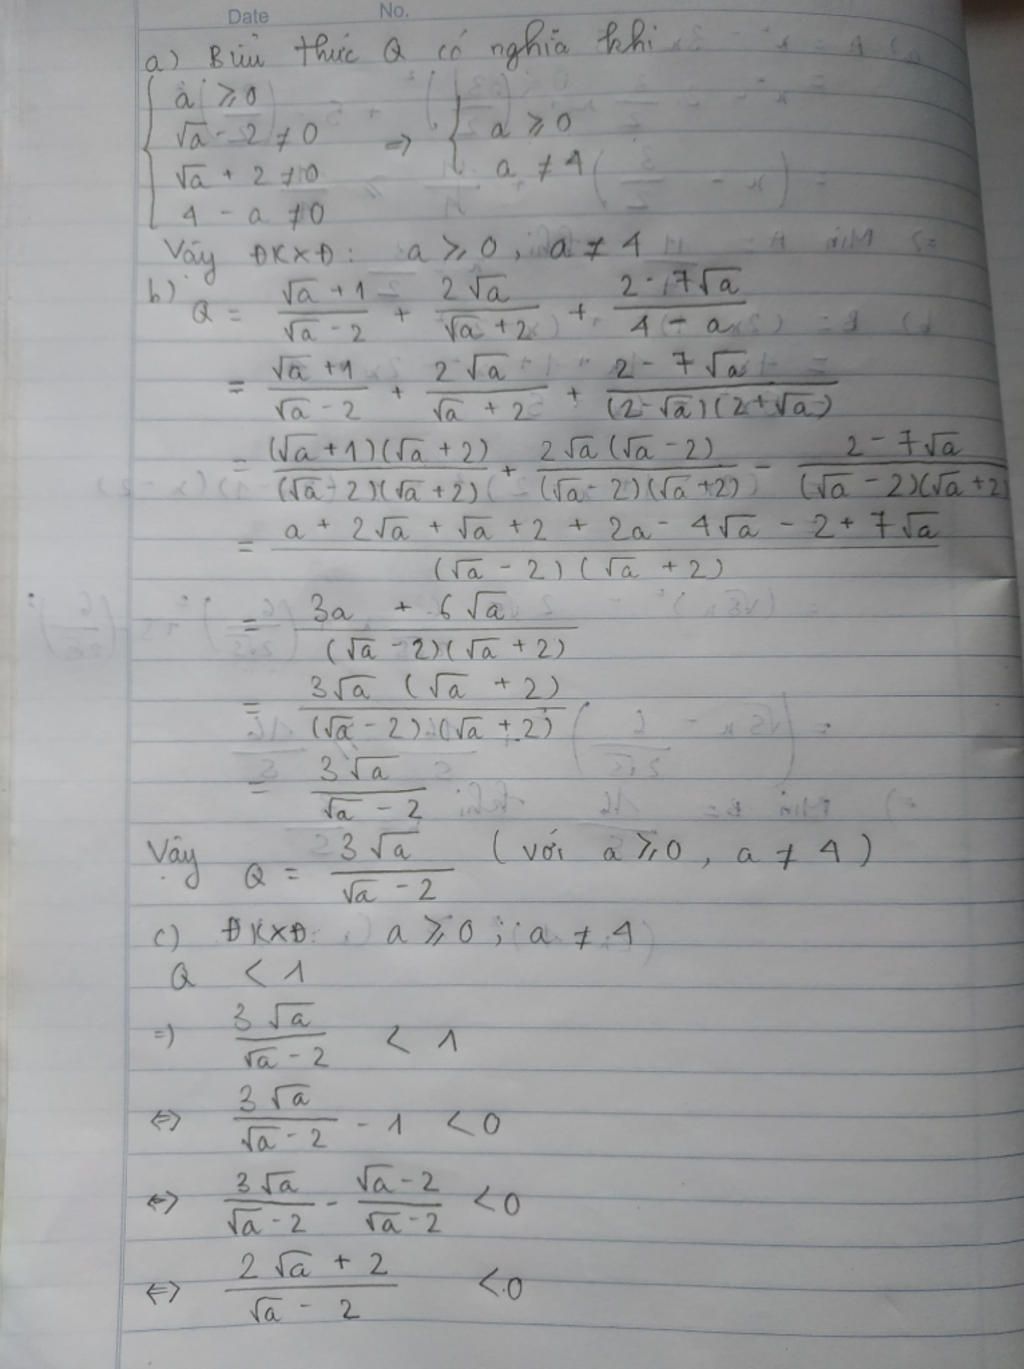 Date No.
a) Biểu thức Q có nghĩa khi
{ a ≥ 0
√a - 2 ≠ 0 => { a ≥ 0
√a + 2 ≠ 0 a ≠ 4
4 - a ≠ 0
Vậy ĐKXĐ: a ≥ 0, a ≠ 4
b) Q = (√a + 1)/(√a - 2) + (2√a)/(√a + 2) + (2 - 7√a)/(4 - a)
= (√a + 1)/(√a - 2) + (2√a)/(√a + 2) + (2 - 7√a)/((2 - √a)(2 + √a))
= ((√a + 1)(√a + 2))/((√a - 2)(√a + 2)) + (2√a(√a - 2))/((√a - 2)(√a + 2)) - (2 - 7√a)/((√a - 2)(√a + 2
= (a + 2√a + √a + 2 + 2a - 4√a - 2 + 7√a)/((√a - 2)(√a + 2))
= (3a + 6√a)/((√a - 2)(√a + 2))
= (3√a (√a + 2))/((√a - 2).(√a + 2))
= (3√a)/(√a - 2)
Vậy Q = (3√a)/(√a - 2) (với a ≥ 0, a ≠ 4)
c) ĐKXĐ: a ≥ 0; a ≠ 4
Q < 1
=> (3√a)/(√a - 2) < 1
<=> (3√a)/(√a - 2) - 1 < 0
<=> (3√a)/(√a - 2) - (√a - 2)/(√a - 2) < 0
<=> (2√a + 2)/(√a - 2) < 0